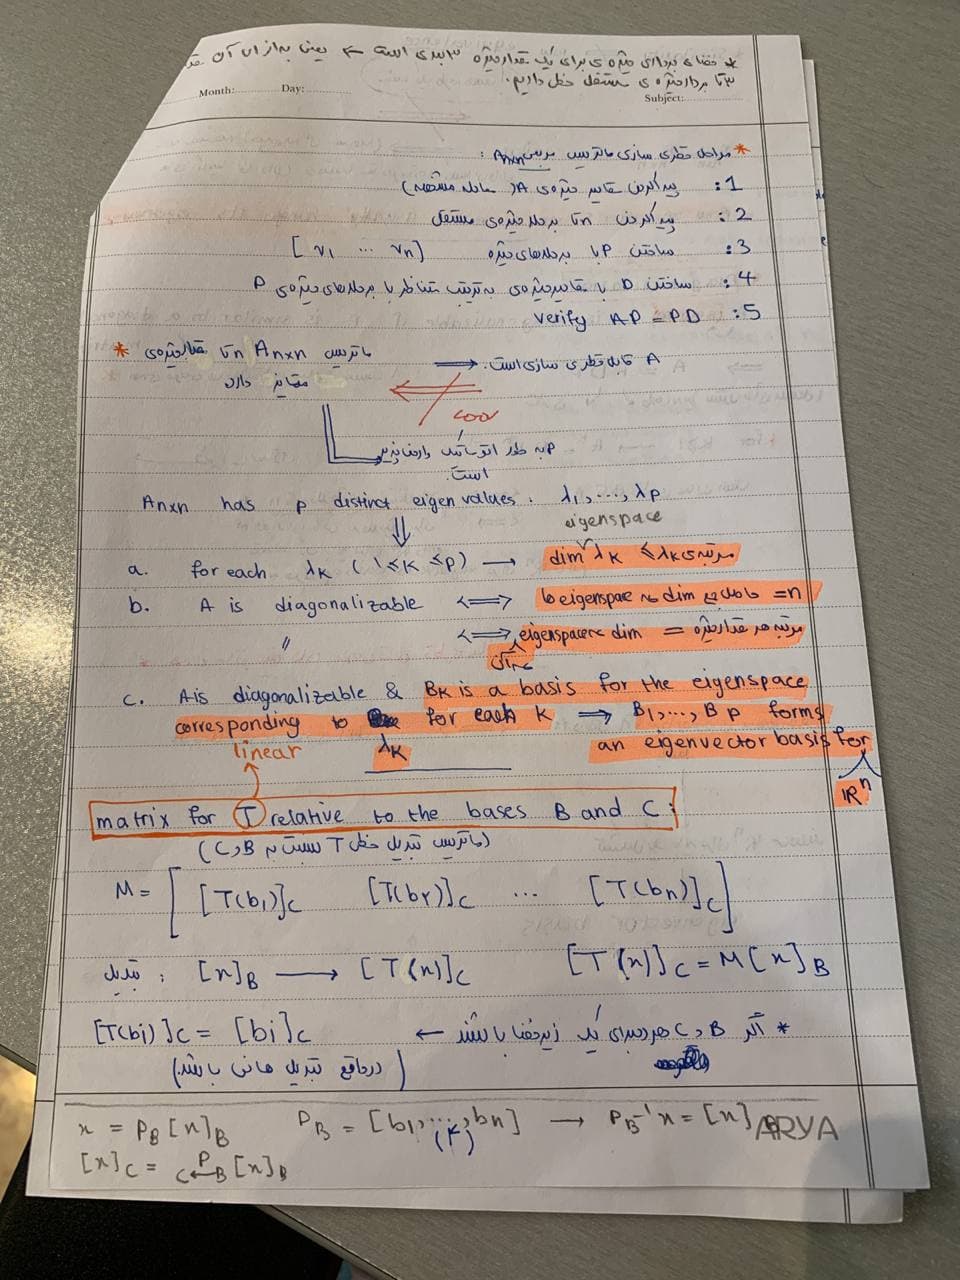 * فضای برداری ویژه ی برای یک مقدار ویژه 3 بعدی است ← یعنی به ازای آن
3 تا بردار ویژه ی مستقل خطی داریم.
Month: Day: Subject:
* مراحل قطری سازی ماتریس مربعی Anxn :
1: پیدا کردن مقادیر ویژه ی A (معادله مشخصه)
2: پیدا کردن n تا بردار ویژه ی مستقل
3: ساختن P با بردارهای ویژه [v1 ... vn]
4: ساختن D با مقادیر ویژه ی به ترتیب متناظر با بردارهای ویژه ی P
5: verify AP = PD
* ماتریس Anxn n تا مقدار ویژه ی متمایز دارد ⟹ A قابل قطری سازی است.
P به طور اتوماتیک وارون پذیر است.
Anxn has p distinct eigen values: λ1, ..., λp
⇓ eigenspace
a. for each λK (1≤K≤p) → dim λK ≤ مرتبه ی λK
b. A is diagonalizable ⟺ حاصل جمع dim eigenspace ها = n
〃 ⟺ dim eigenspace = مرتبه هر مقدار ویژه
c. A is diagonalizable & BK is a basis for the eigenspace
corresponding to λK for each K ⟹ B1, ..., Bp forms
an eigenvector basis for ℝⁿ
linear
matrix for T relative to the bases B and C:
(ماتریس تبدیل خطی T نسبت به B و C)
M = [ [T(b1)]C [T(b2)]C ... [T(bn)]C ]
تبدیل: [x]B → [T(x)]C [T(x)]C = M[x]B
* اگر B و C هر دو برای یک زیرفضا باشند ← [T(bi)]C = [bi]C
(در واقع تبدیل همانی باشد)
x = PB[x]B PB = [b1, ..., bn] → PB⁻¹x = [x]B
[x]C = P C←B [x]B
(4)
ARYA